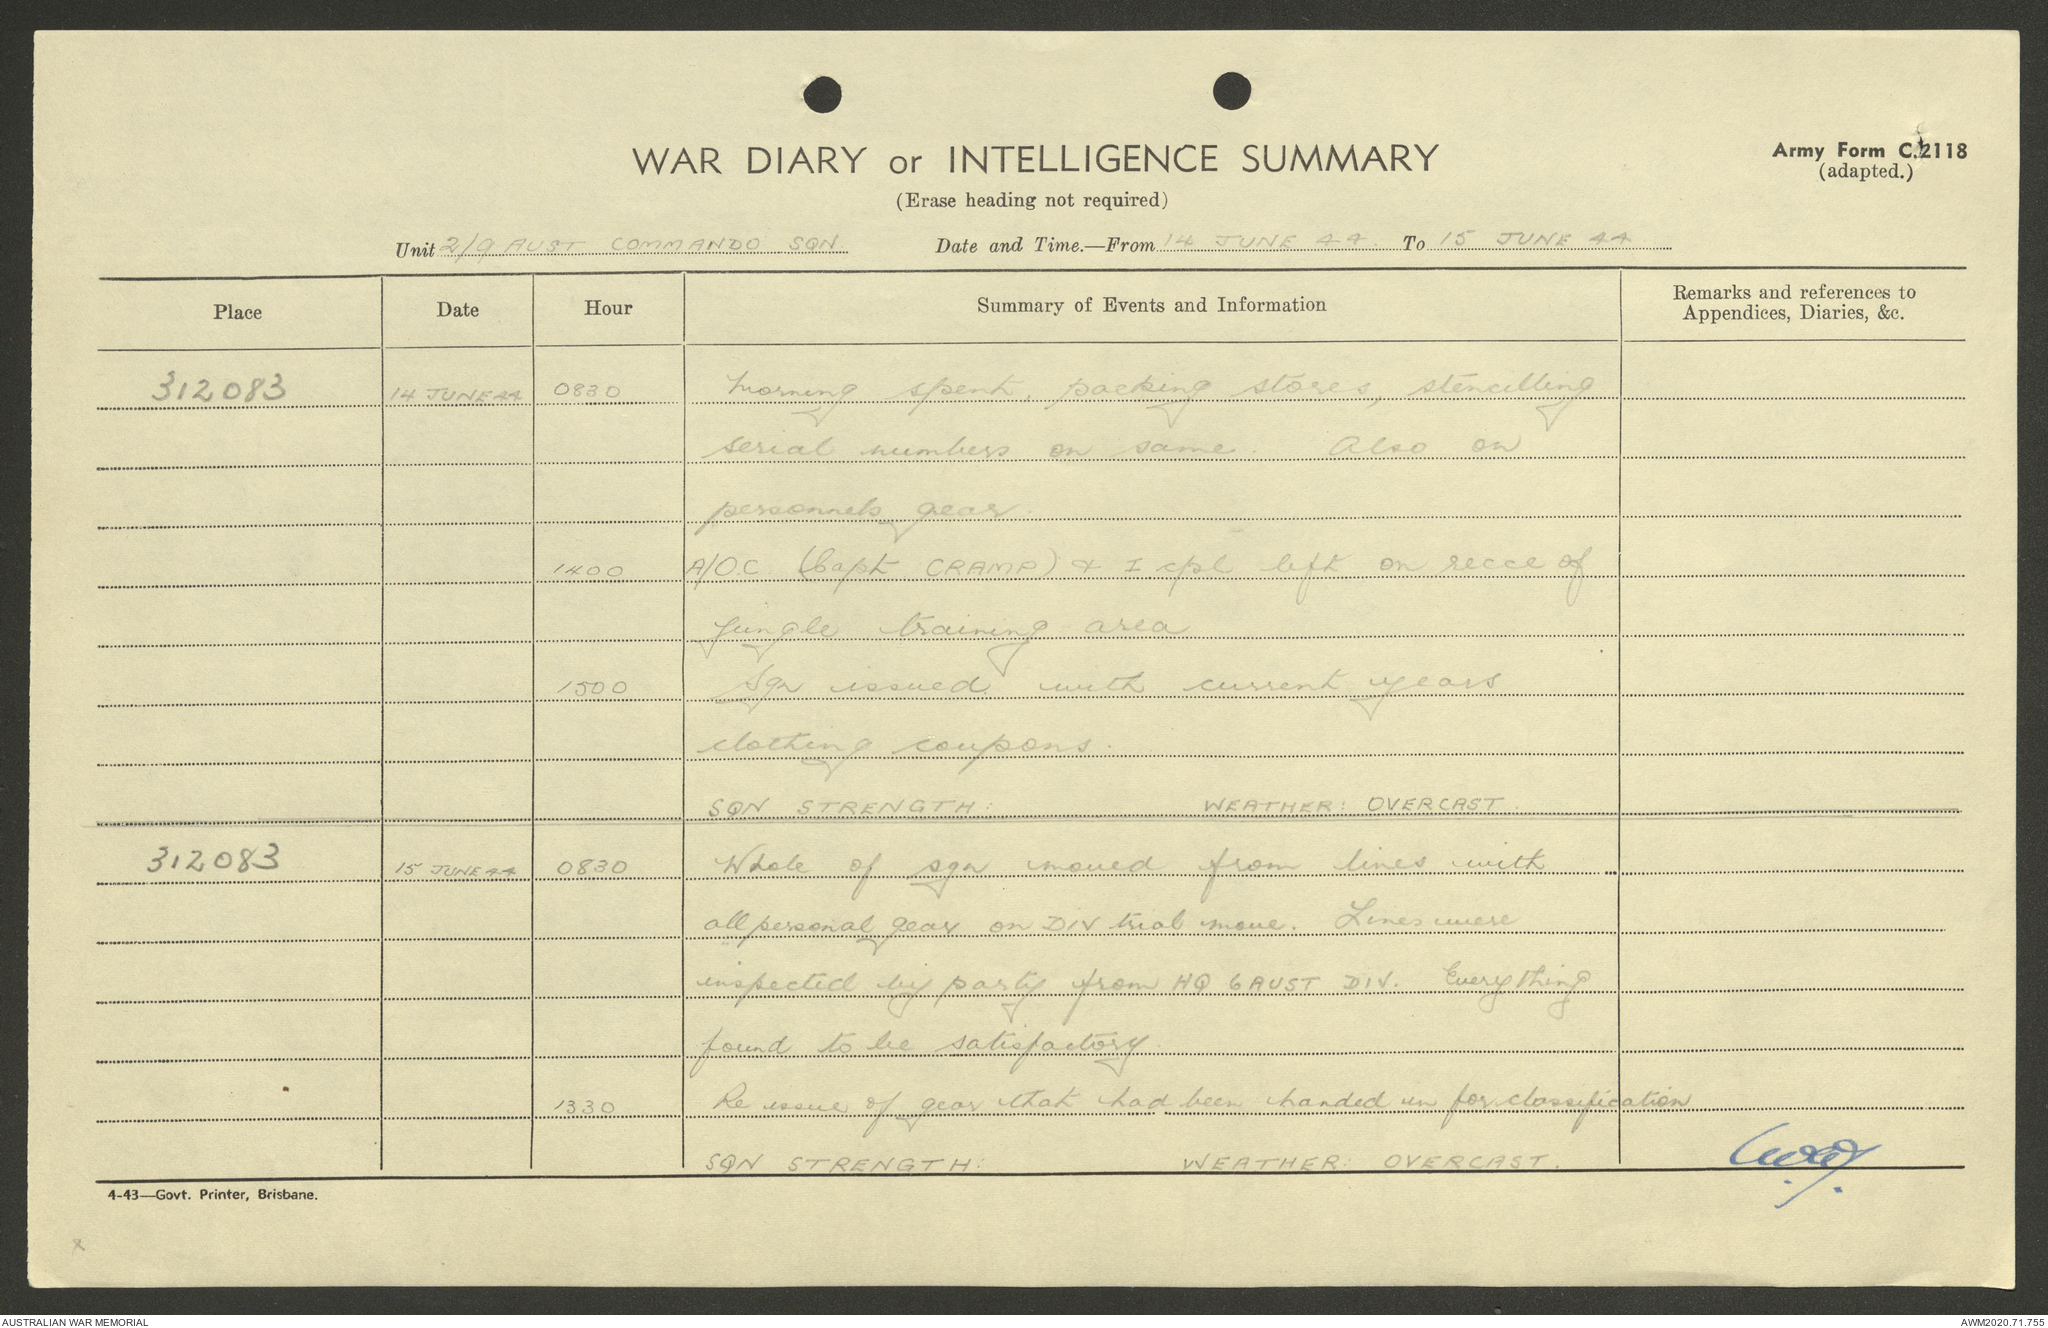 WAR DIARY or INTELLIGENCE SUMMARY
Army Form C.2118
(adapted.)
(Erase heading not required)
Unit 2/9 AUST COMMANDO SQN. Date and Time.—From 14 JUNE 44. To 15 JUNE 44
Place Date Hour Summary of Events and Information Remarks and references to
Appendices, Diaries, &c.
312083 14 JUNE 44 0830 Morning spent, packing stores, stencilling
serial numbers on same. Also on
personnels gear.
1400 A/O.C. (Capt CRAMP) & I cpl left on recce of
jungle training area
1500 Sqn issued with current years
clothing coupons.
SQN STRENGTH: WEATHER: OVERCAST.
312083 15 JUNE 44 0830 Whole of sqn moved from lines with
all personal gear on DIV trial move. Lines were
inspected by party from HQ 6 AUST DIV. Everything
found to be satisfactory.
1330 Re issue of gear that had been handed in for classification
SQN STRENGTH: WEATHER: OVERCAST.
4-43—Govt. Printer, Brisbane.
AUSTRALIAN WAR MEMORIAL AWM2020.71.755